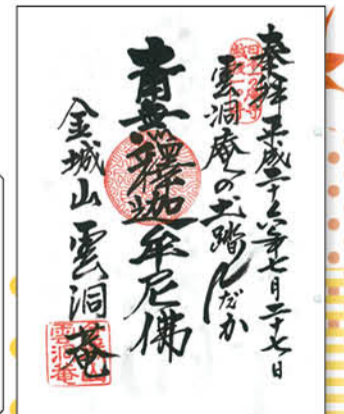 奉拝 平成二十六年七月二十七日
雲洞庵の土踏んだか
南無釋迦牟尼佛
金城山 雲洞菴